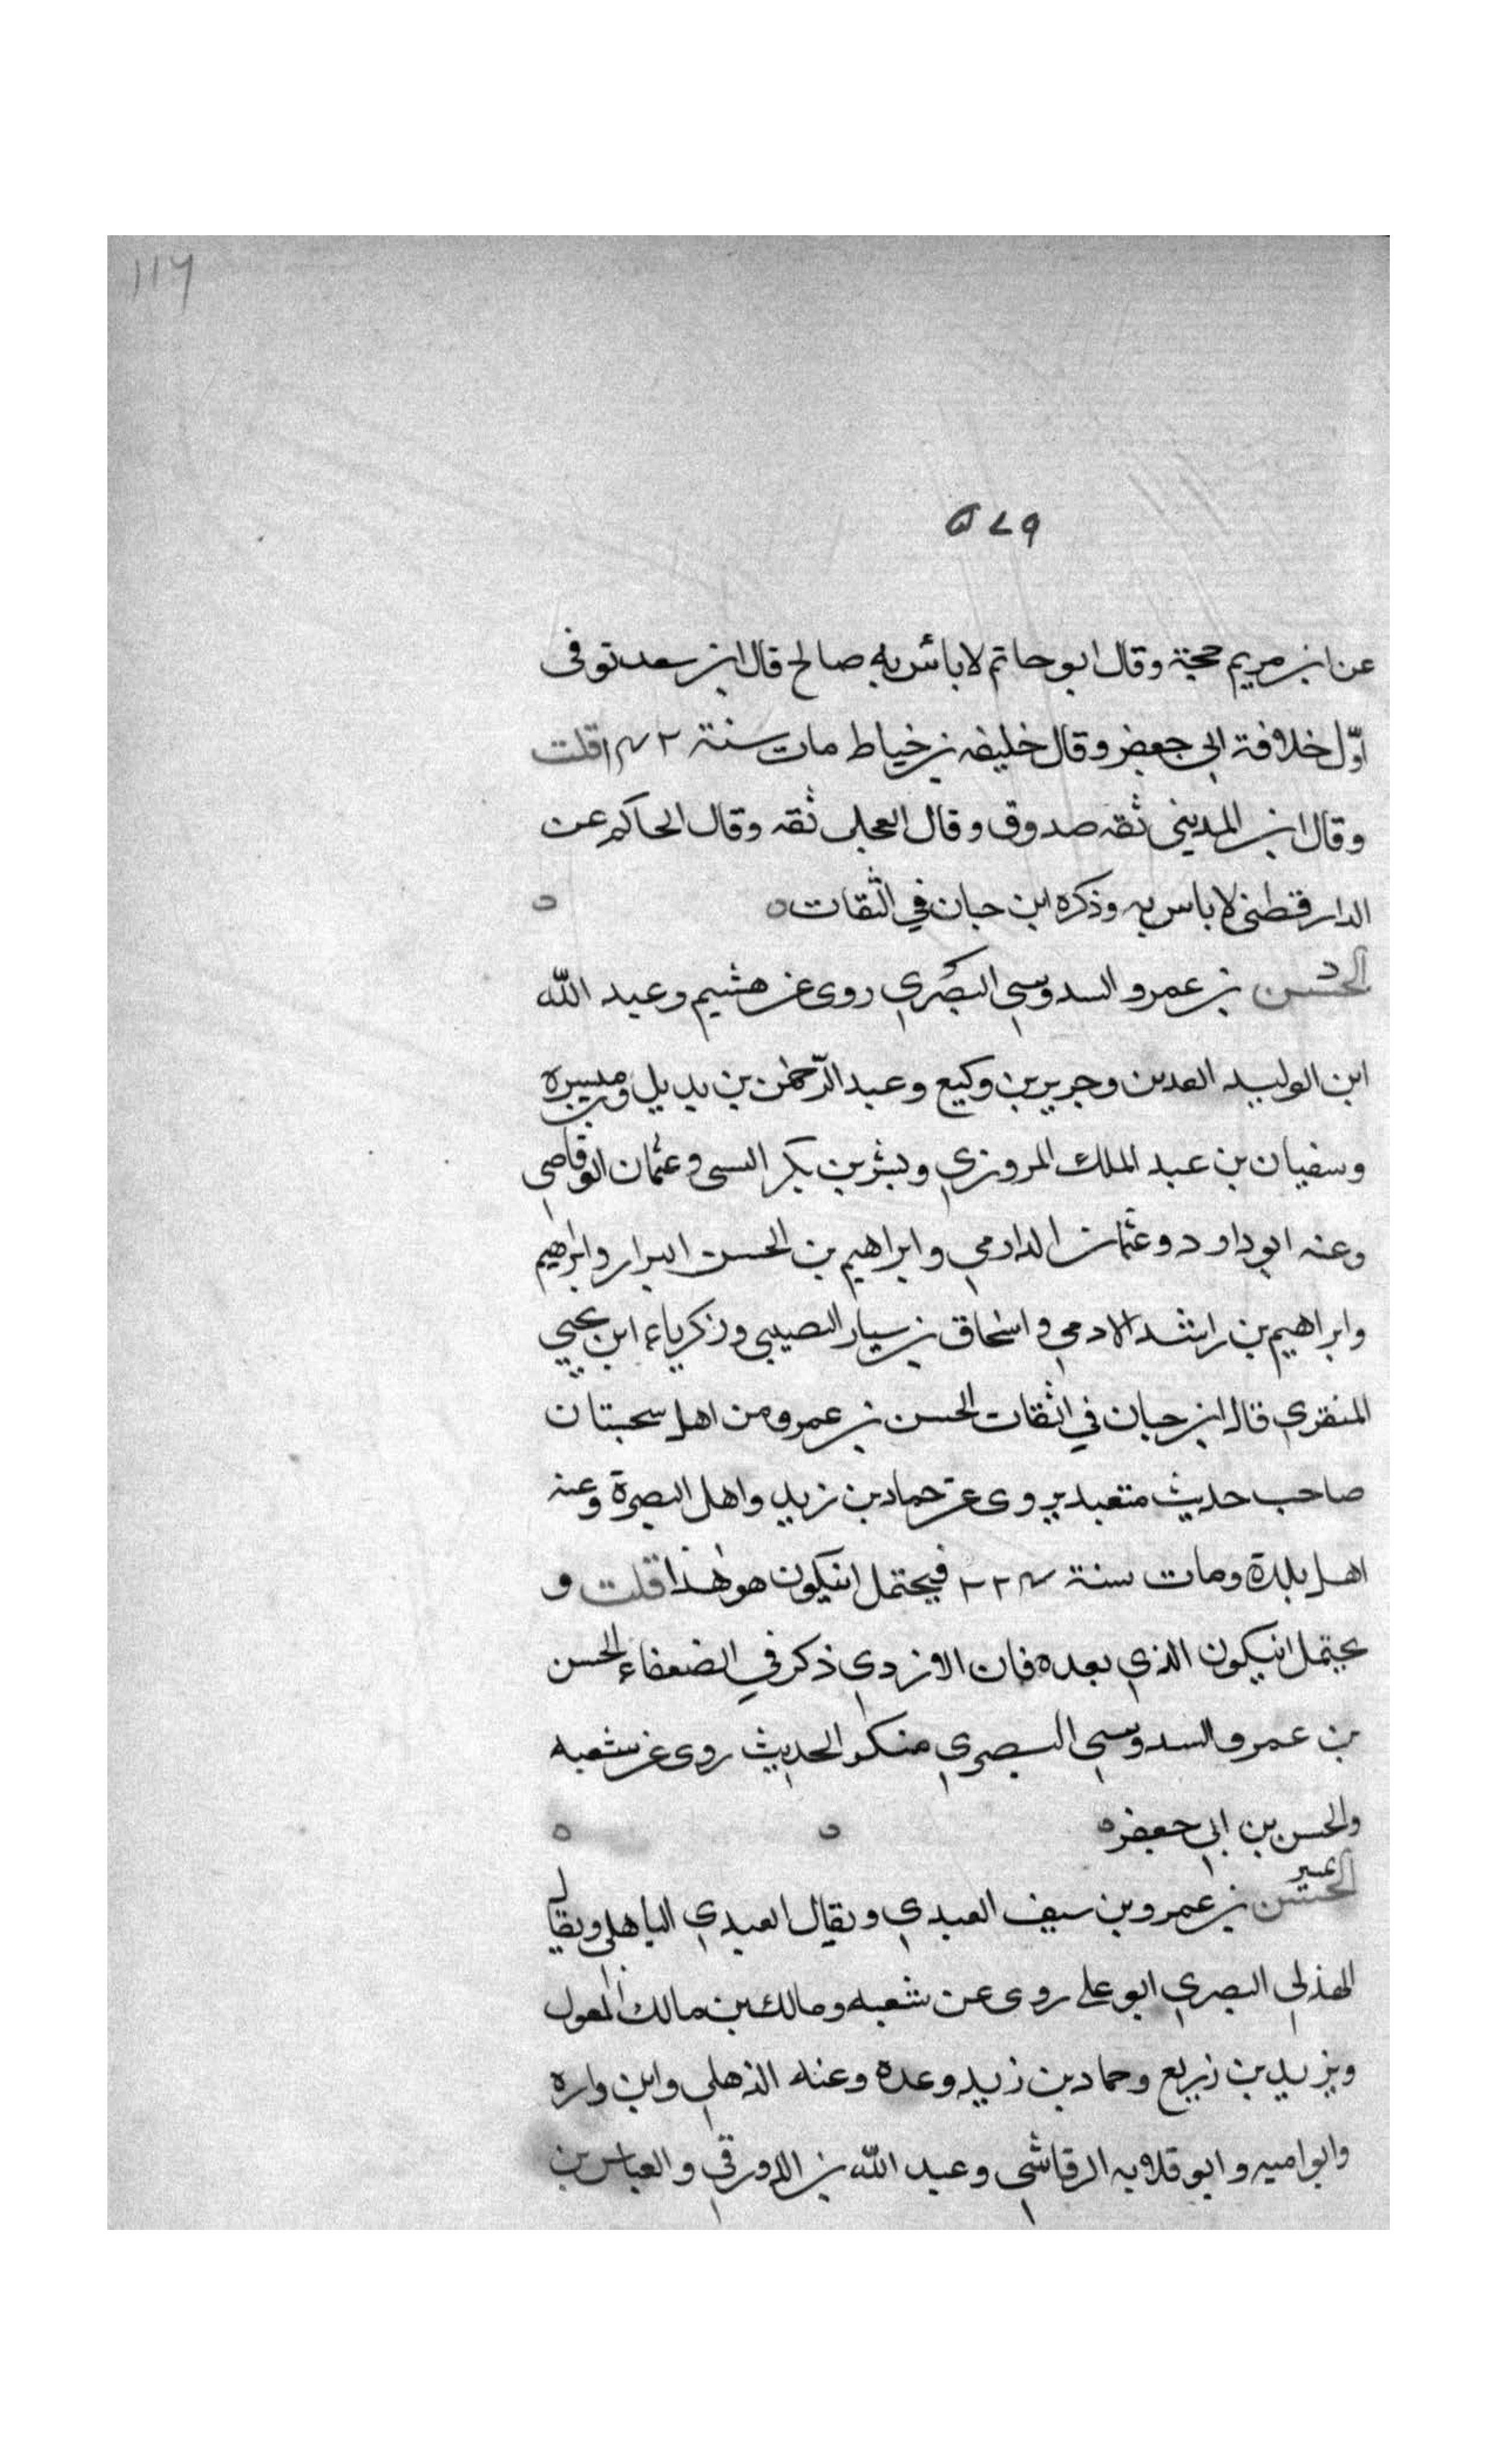 ١١٦
٥٤٩
عن ابن مريم حجة وقال ابو حاتم لا بأس به صالح قال ابن سعد توفى
اوّل خلافة ابي جعفر وقال خليفه بن خياط مات سنة ١٤٢ قلت
وقال ابن المديني ثقه صدوق وقال العجلى ثقه وقال الحاكم عن
الدارقطني لا باس به وذكره ابن حبان في الثقات
د
الحسن بن عمرو السدوسي البصري روى عن هشيم وعبد الله
ابن الوليد العدني وجرير بن وكيع وعبد الرحمن بن بديل وميسره
وسفيان بن عبد الملك المروزي وبشر بن بكر السى وعثمان الوقاصي
وعنه ابو داود وعثمان الدارمي وابراهيم بن الحسن البرار وابراهيم
وابراهيم بن راشد الادمي واسحاق بن سيار النصيبى وزكرياء ابن يحيي
المنقري قال ابن حبان في الثقات الحسن بن عمرو من اهل سجستان
صاحب حديث متعبد يروى عن حماد بن زيد واهل البصرة وعنه
اهل بلدة ومات سنة ٢٢٤ فيحتمل انيكون هو هذا قلت و
يحتمل انيكون الذي بعده فان الازدي ذكر في الضعفاء الحسن
بن عمرو السدوسي البصري منكر الحديث روى عن شعبه
والحسن بن ابي جعفر
تمييز
الحسن بن عمرو بن سيف العبدي ويقال العبدي الباهلي ويقال
الهذلي البصري ابو على روى عن شعبه ومالك بن مالك المعول
ويزيد بن زريع وحماد بن زيد وعدة وعنه الذهلي وابن واره
وابو اميه وابو قلابه الرقاشي وعبد الله بن الدورقي والعباس بن